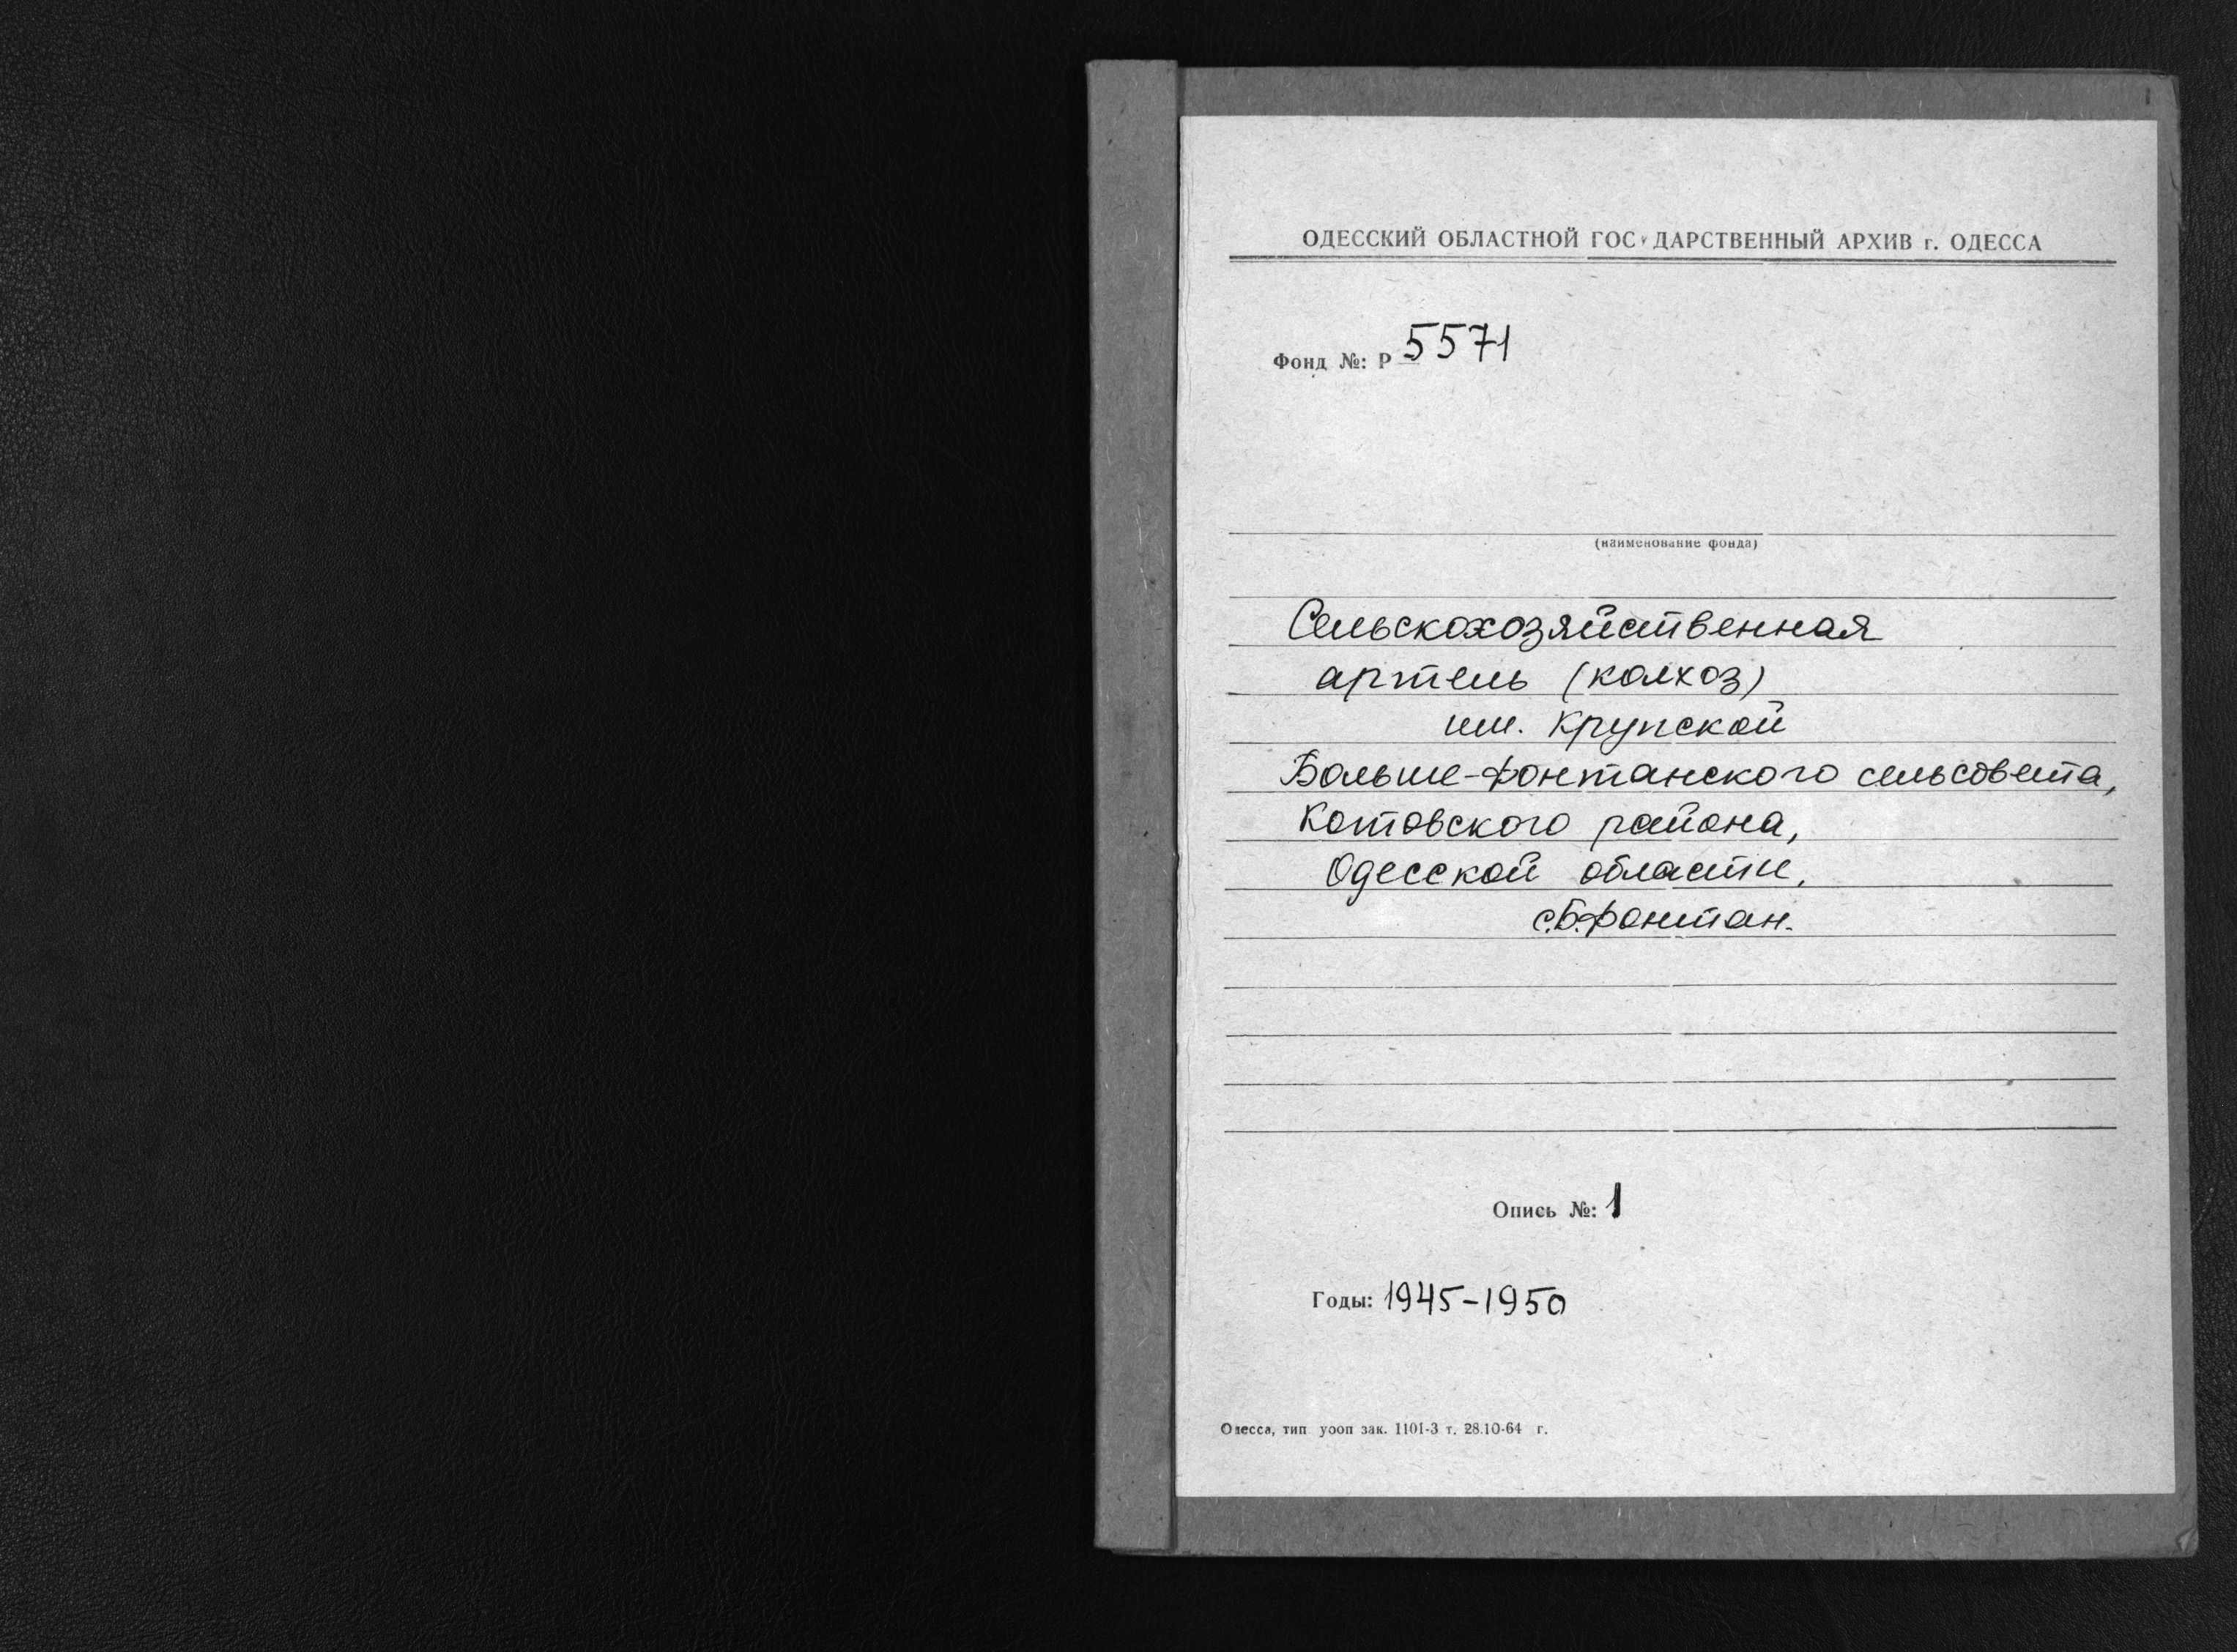 1
ОДЕССКИЙ ОБЛАСТНОЙ ГОСУДАРСТВЕННЫЙ АРХИВ г. ОДЕССА
Фонд №: Р 5571
(наименование фонда)
Сельскохозяйственная
артель (колхоз)
им. Крупской
Больше-Фонтанского сельсовета,
Котовского района,
Одесской области,
с.Б.Фонтан.
Опись №: 1
Годы: 1945-1950
Одесса, тип уооп зак. 1101-3 т. 28.10-64 г.